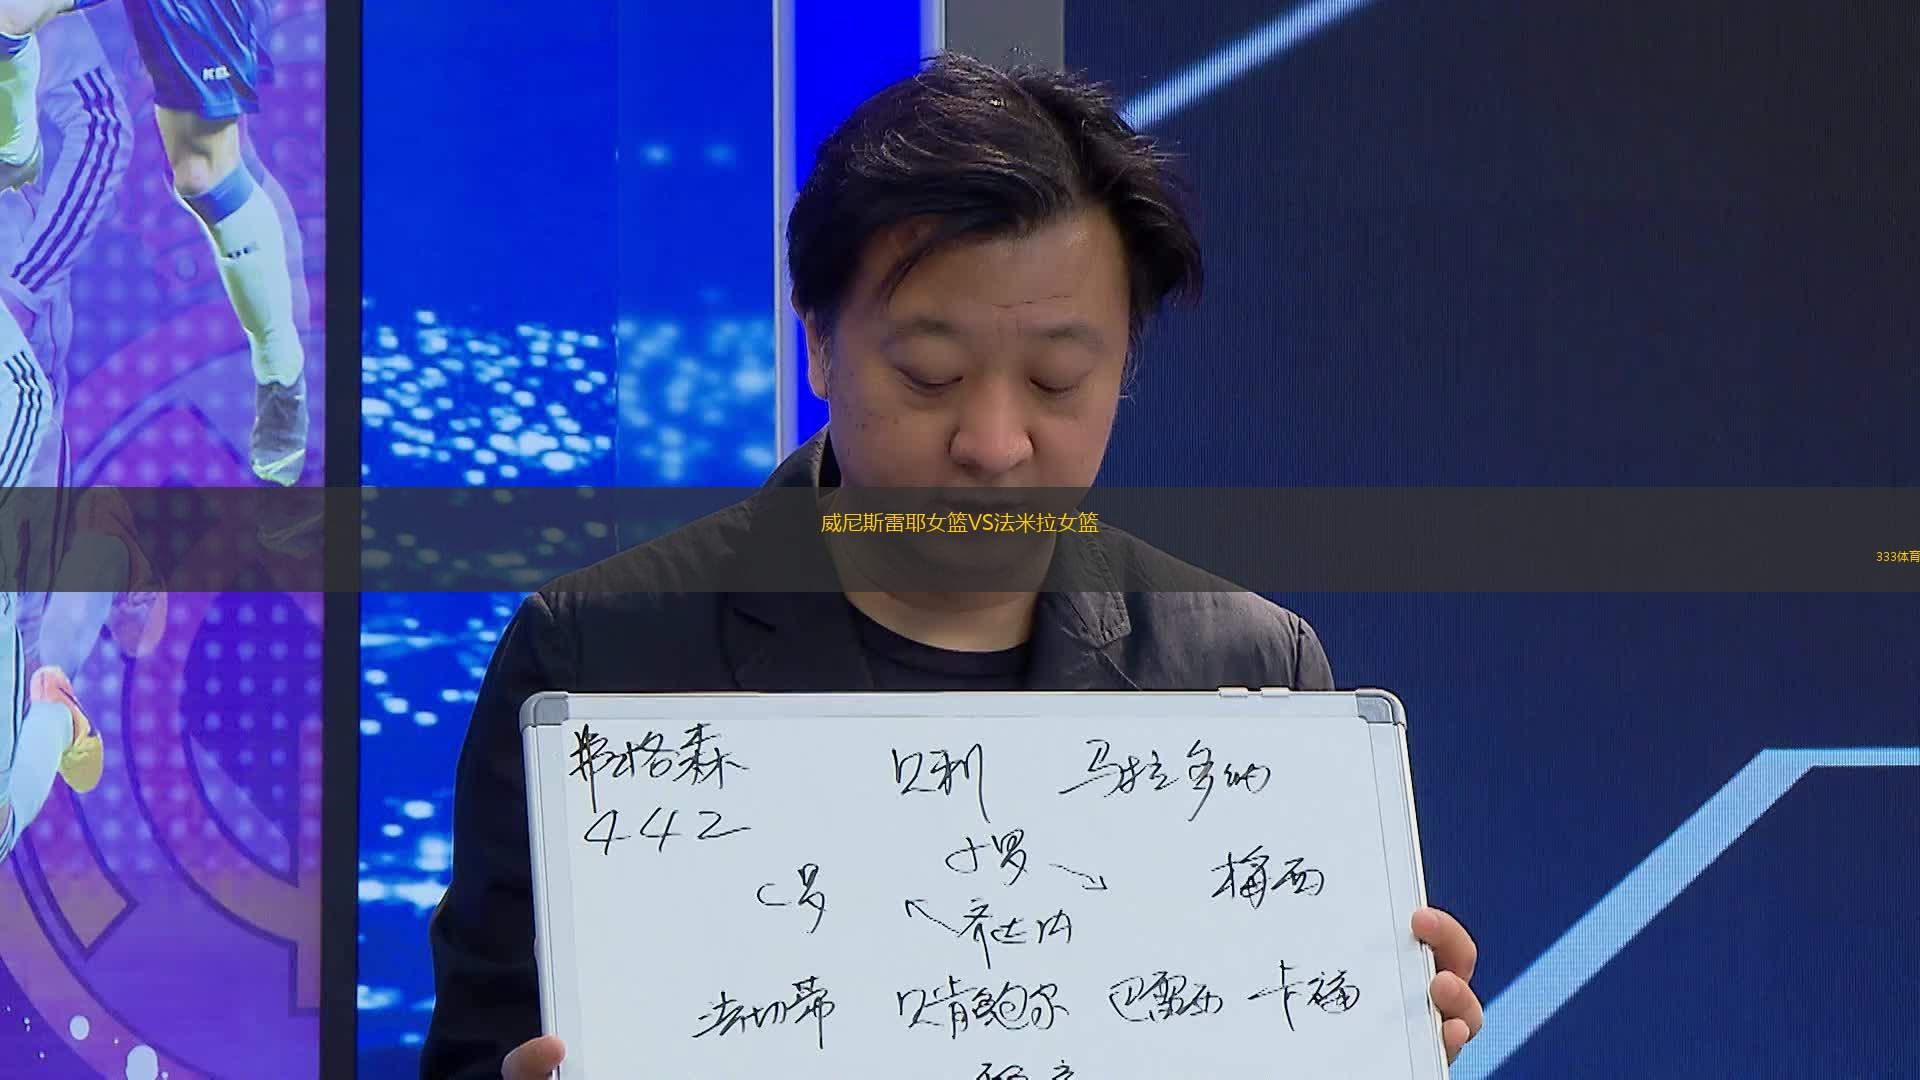 威尼斯雷耶女篮VS法米拉女篮
333体育
弗格森 贝利 马拉多纳
442
小罗
C罗 梅西
齐达内
法切蒂 贝肯鲍尔 巴雷西 卡福